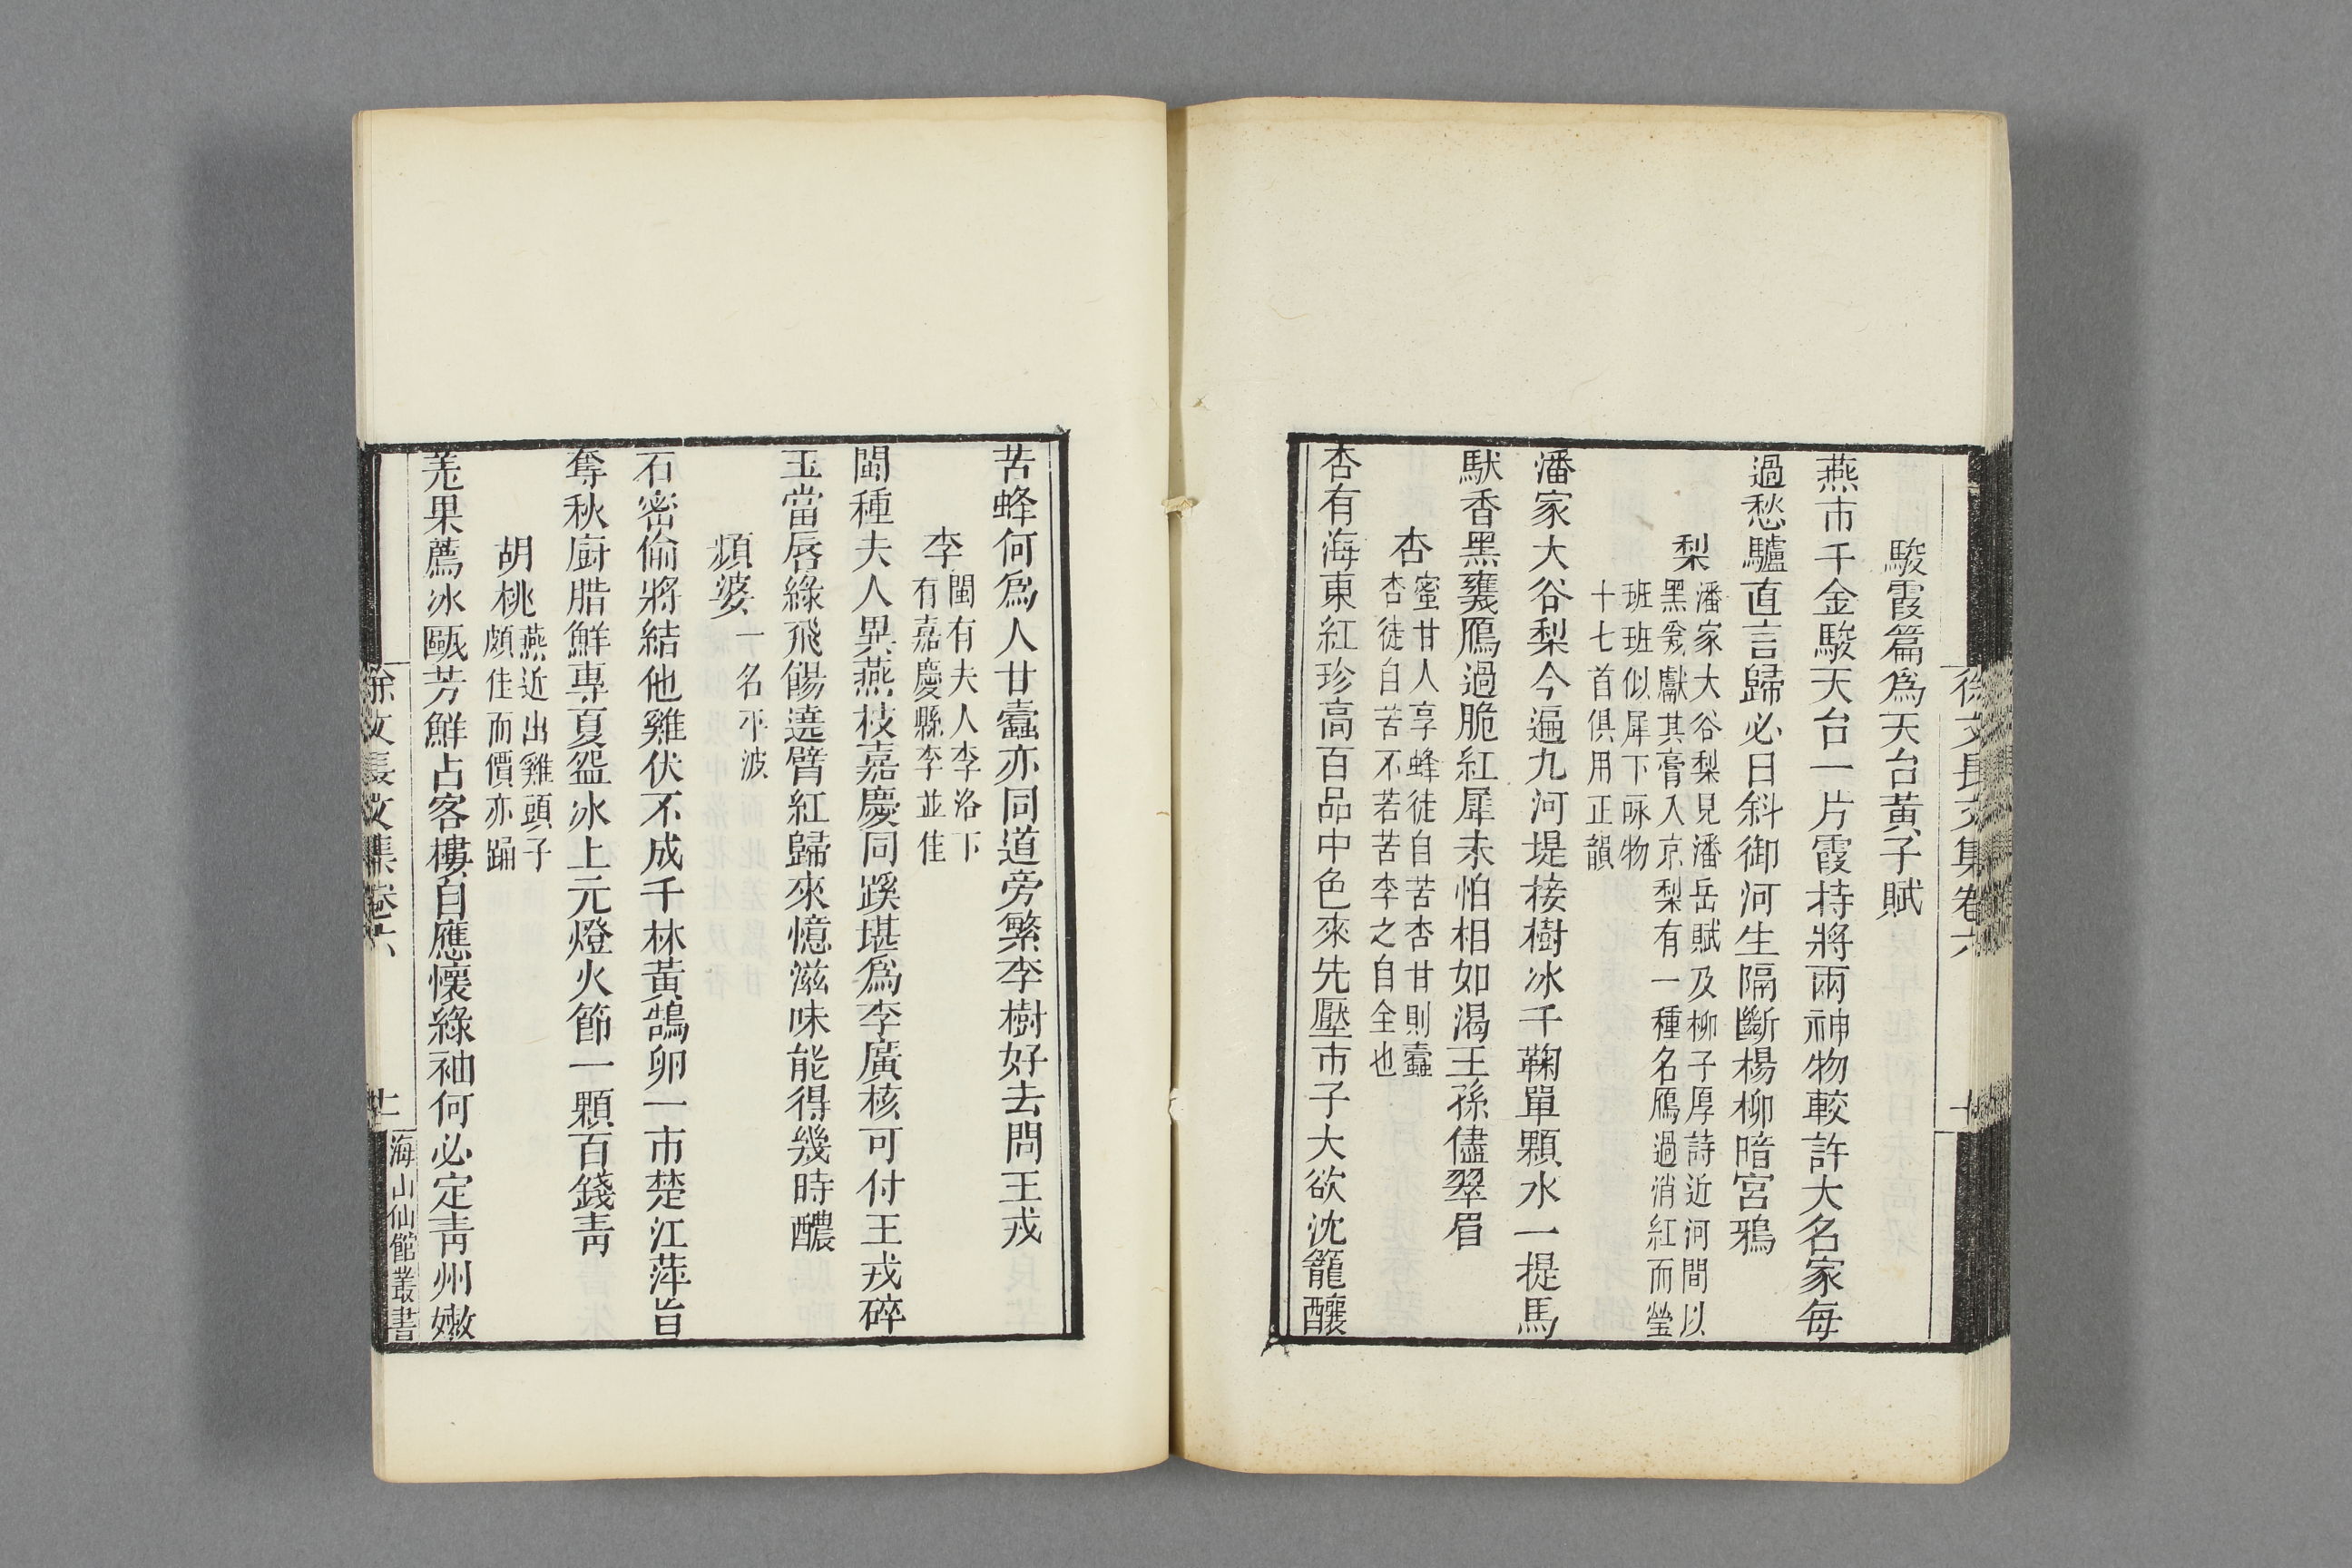 徐文長文集卷六
十
駿霞篇爲天台黃子賦
燕市千金駿天台一片霞持將兩神物較許大名家每
過愁驢直言歸必日斜御河生隔斷楊柳暗宮鴉
梨
潘家大谷梨見潘岳賦及柳子厚詩近河間以
黑爰獻其膏入京梨有一種名鴈過消紅而瑩
班班似犀下咏物
十七首俱用正韻
潘家大谷梨今遍九河堤接樹冰千鞠單顆水一提馬
馱香黑甕鴈過脆紅犀未怕相如渴王孫儘翠眉
杏
蜜甘人享蜂徒自苦杏甘則蠹
杏徒自苦不若苦李之自全也
杏有海東紅珍高百品中色來先壓市子大欲沈籠釀
苦蜂何爲人甘蠹亦同道旁繁李樹好去問王戎
李
閩有夫人李洛下
有嘉慶縣李並佳
閩種夫人異燕枝嘉慶同蹊堪爲李廣核可付王戎碎
玉當唇綠飛觴遶臂紅歸來憶滋味能得幾時醲
頻婆
一名平波
石密偷將結他雞伏不成千林黃鵠卵一市楚江萍旨
奪秋廚腊鮮專夏盌冰上元燈火節一顆百錢青
胡桃
燕近出雞頭子
頗佳而價亦踊
羌果薦冰甌芳鮮占客樓自應懷綠袖何必定青州嫩
徐文長文集卷六
十一
海山仙館叢書